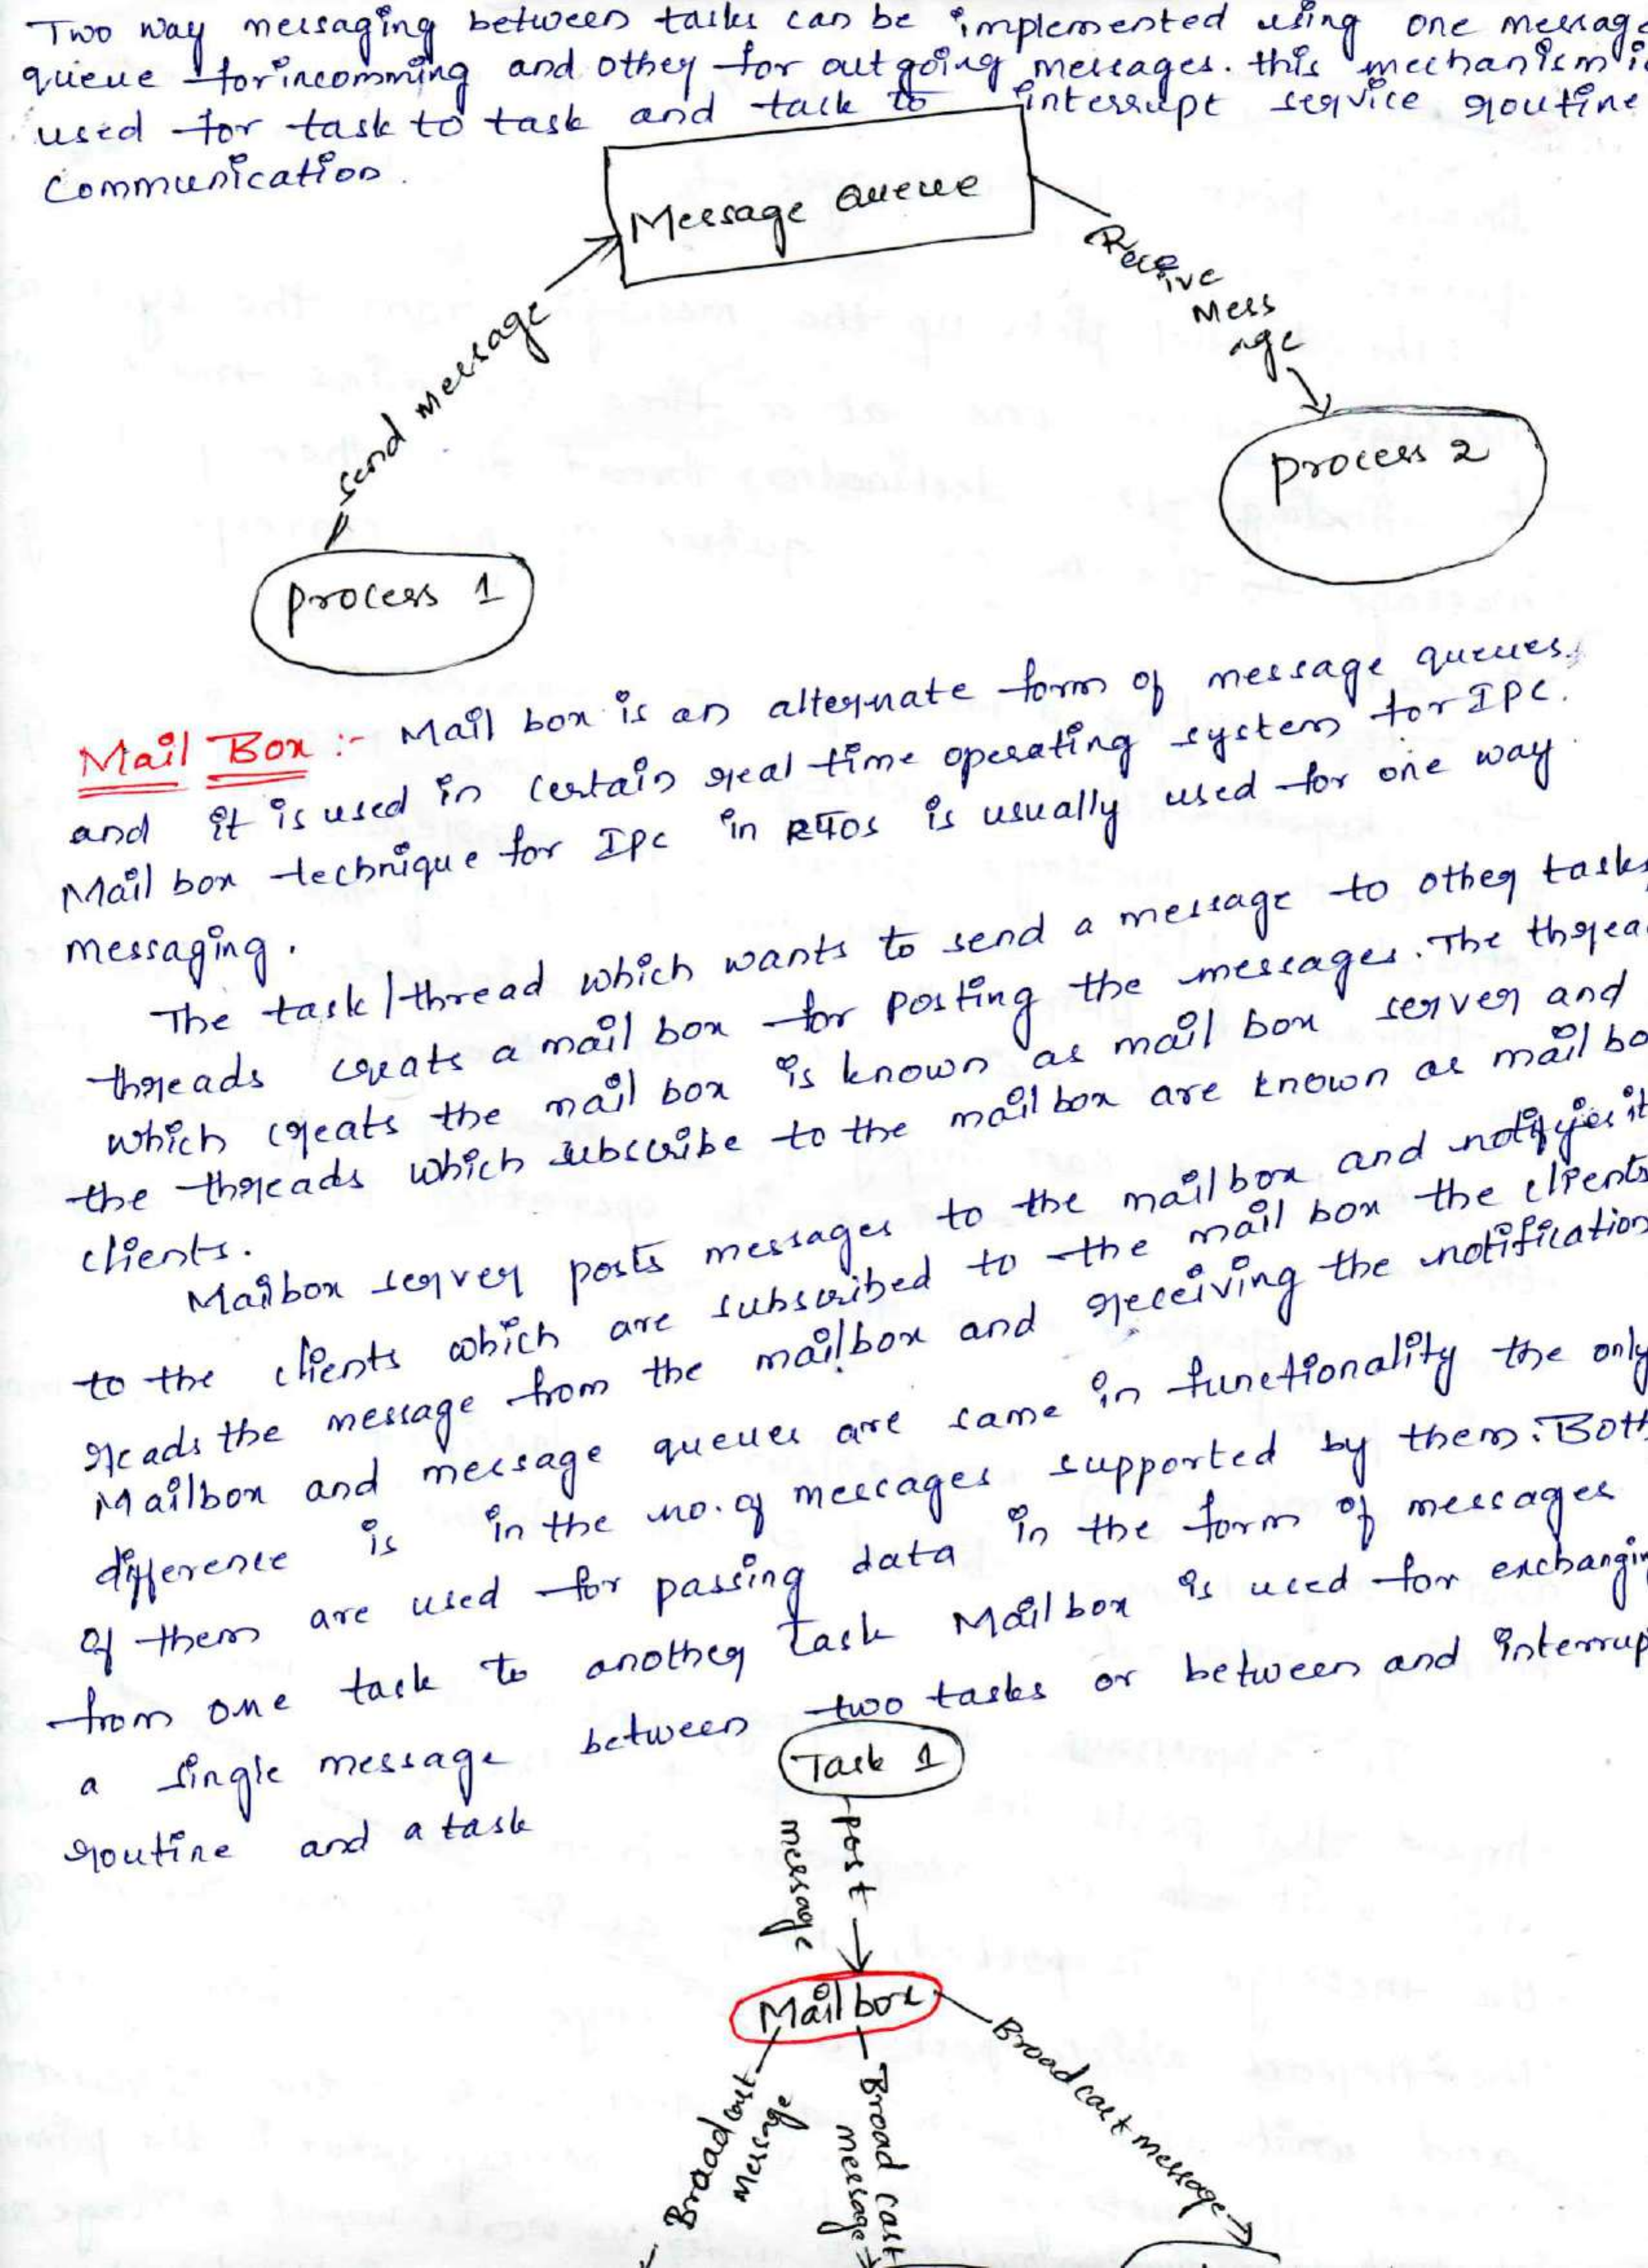 Two way messaging between tasks can be implemented using one messag
queue for incomming and other for out going messages. this mechanism i
used for task to task and task to interrupt service routine
Communication.
Message Queue
Send message
Receive
Mess
age
process 1
process 2
Mail Box :- Mail box is an alternate form of message queues.
and it is used in certain real time operating system for IPC.
Mail box technique for IPC in RTOS is usually used for one way
messaging.
The task/thread which wants to send a message to other tasks
threads creats a mail box for posting the messages. The threa
which creats the mail box is known as mail box server and
the threads which subscribe to the mail box are known as mail bo
clients.
Mailbox server posts messages to the mailbox and notifyies it
to the clients which are subscribed to the mail box the clients
reads the message from the mailbox and receiving the notification
Mailbox and message queues are same in functionality the only
difference is in the no. of messages supported by them. Both
of them are used for passing data in the form of messages
from one task to another task Mailbox is used for exchangin
a single message between two tasks or between and interrup
routine and a task
Task 1
post
message
Mailbox
Broadcast
Message
Broad cast
message
Broad cast message